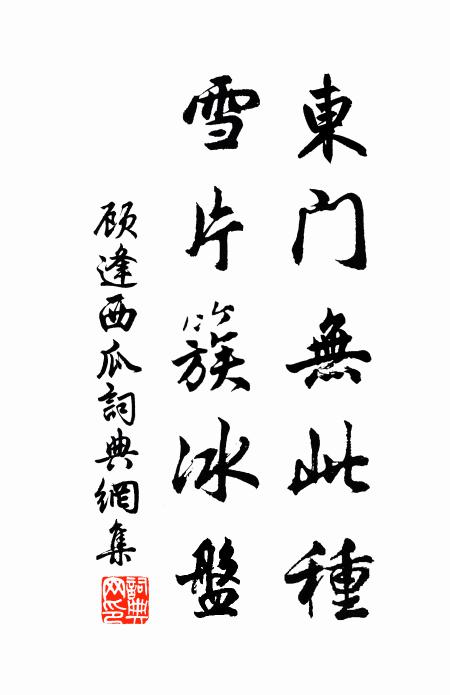 東門無此種
雪片簇冰盤
顾逢西瓜詞典網集
詞典網印